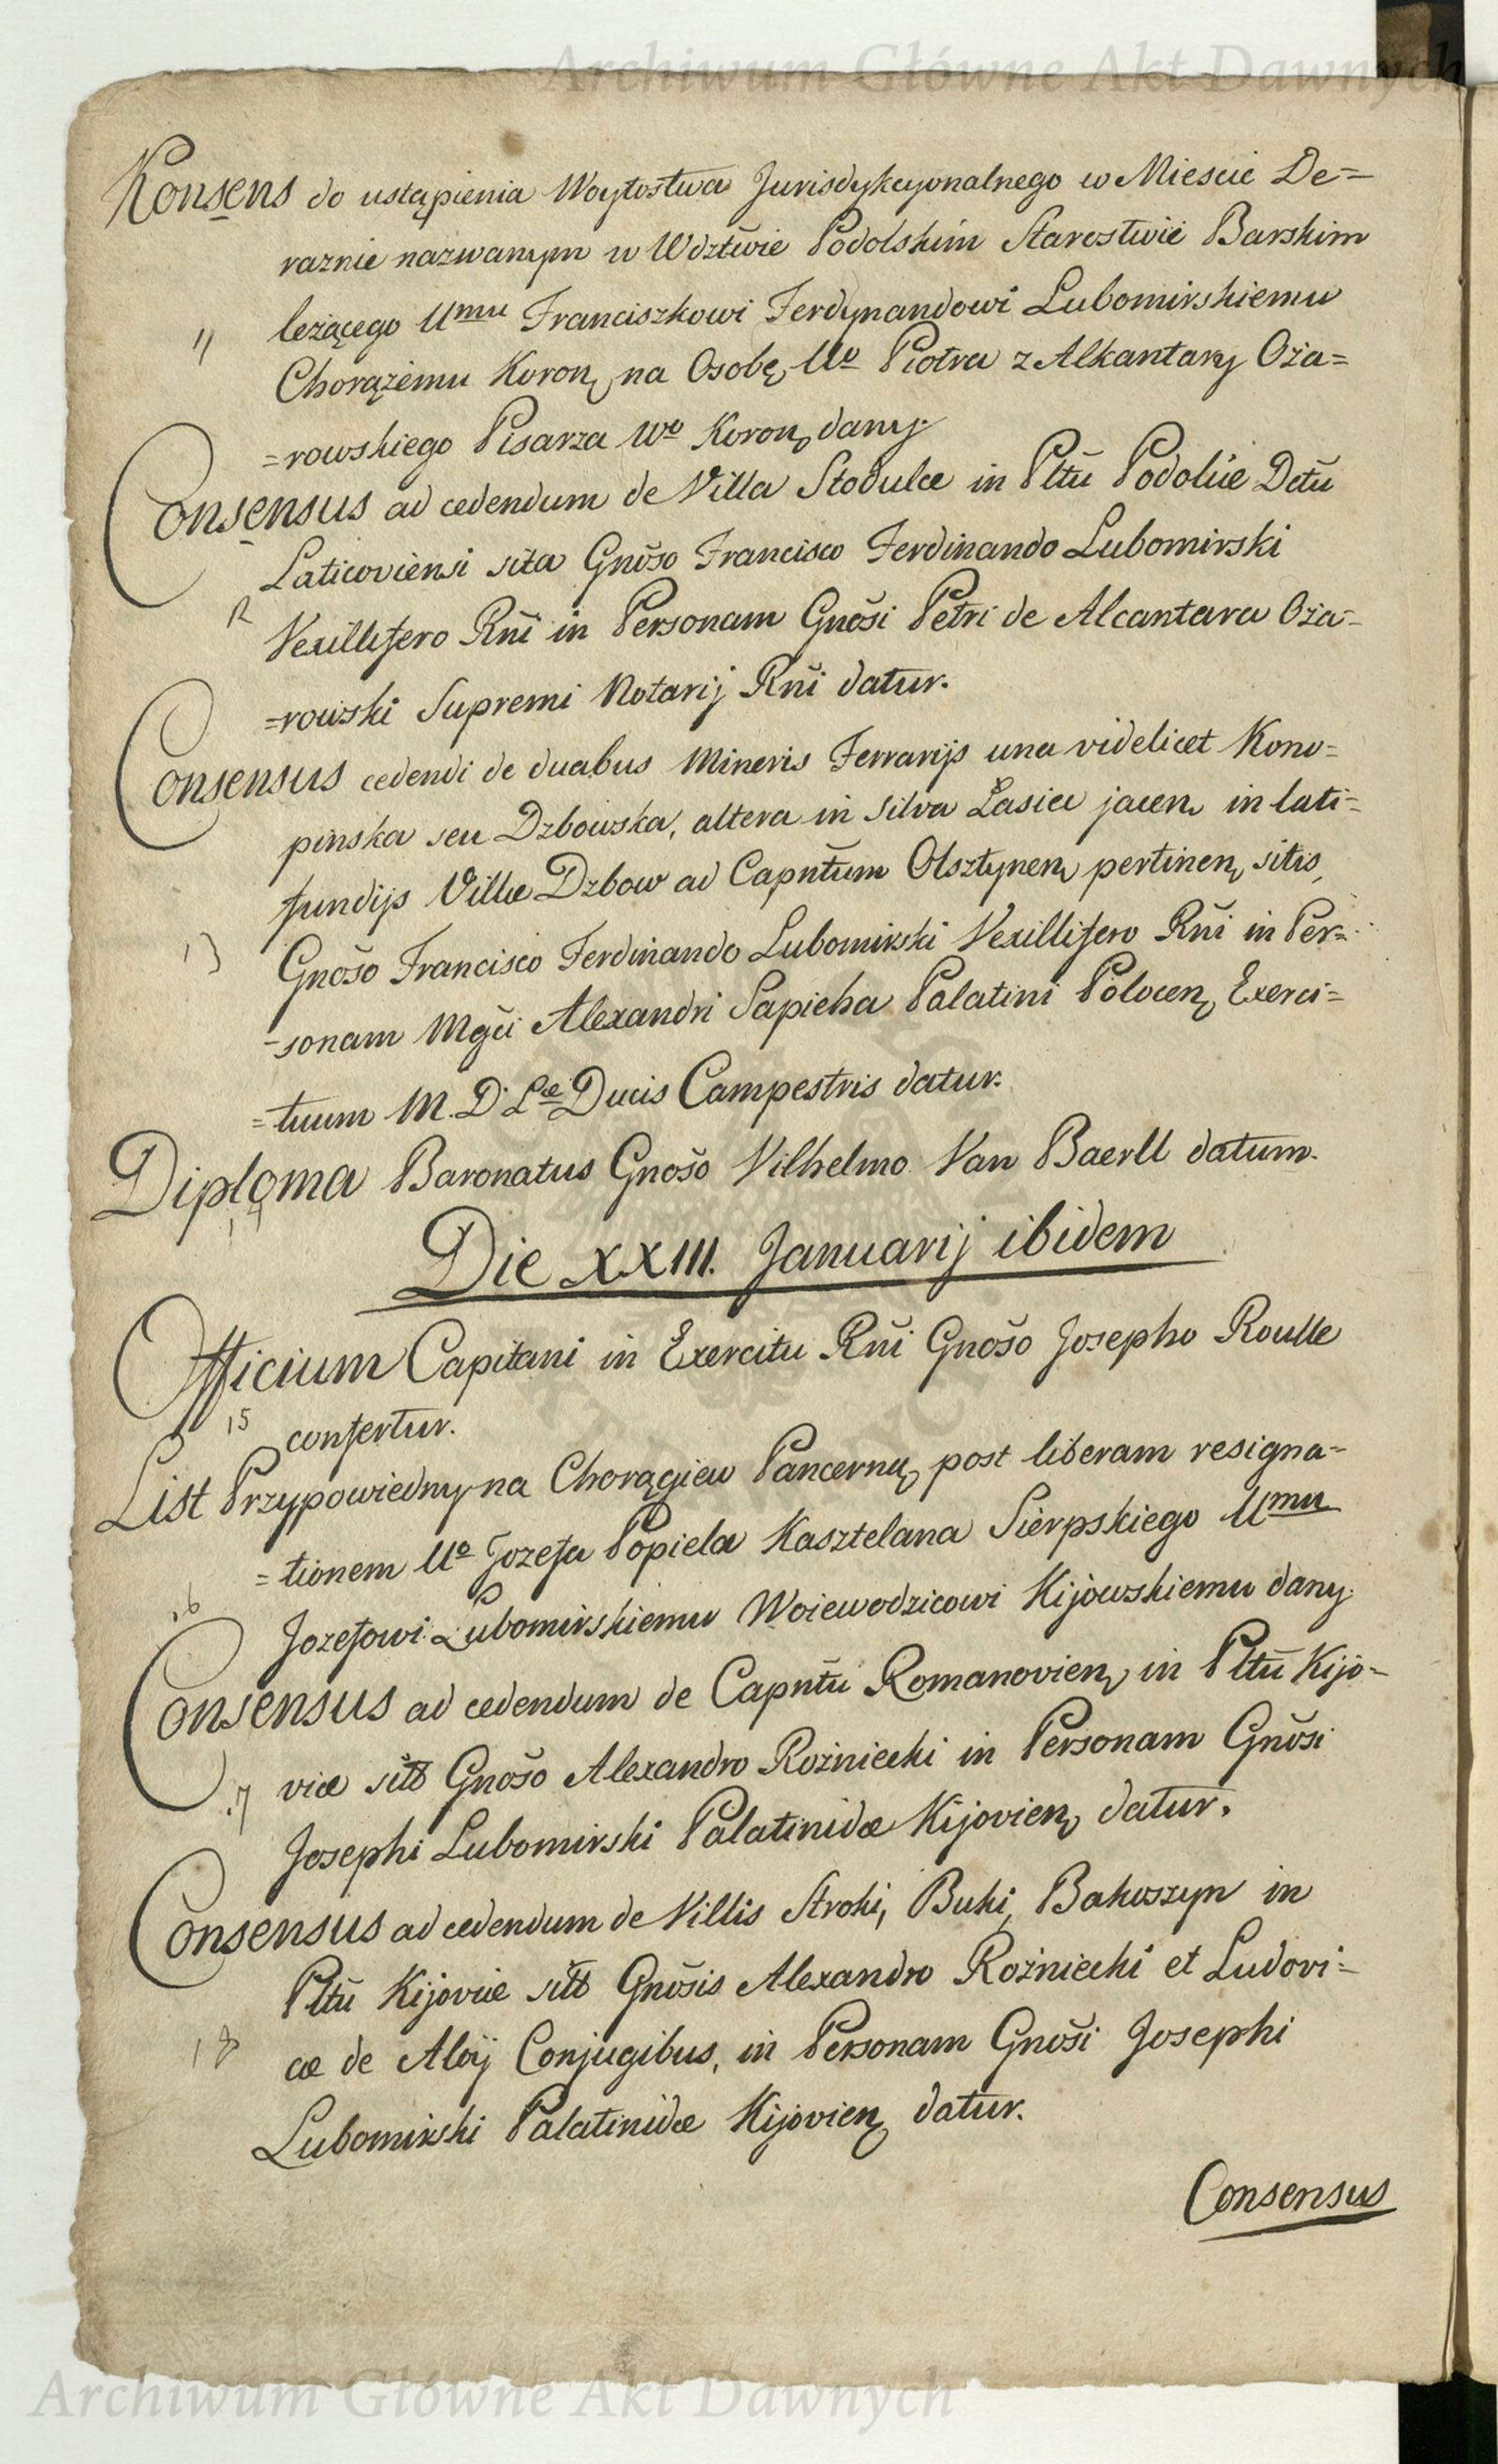 Archiwum Główne Akt Dawnych
Konsens do ustąpienia Woytostwa Jurisdykcyonalnego w Miescie De=
raznie nazwanym w Wdztwie Podolskim Starostwie Barskim
11 leżącego Umu Franciszkowi Ferdynandowi Lubomirskiemu
Chorążemu Koron, na Osobę Uo Piotra z Alkantary Oża=
=rowskiego Pisarza Wo Koron, dany.
Consensus ad cedendum de Villa Stodulce in Pltũ Podoliæ Dctũ
Laticoviensi sita Gnõso Francisco Ferdinando Lubomirski
12 Vexillifero Rñi in Personam Gnõsi Petri de Alcantara Oża=
=rowski Supremi Notarij Rñi datur.
Consensus cedendi de duabus Mineris Ferrarijs una videlicet Kono=
pinska seu Dzbowska, altera in silva Lasiec jacen, in lati=
fundijs Villæ Dzbow ad Capñtum Olsztynen, pertinen, sitis,
13 Gnõso Francisco Ferdinando Lubomirski Vexillifero Rñi in Per=
-sonam Mgci Alexandri Sapieha Palatini Polocen, Exerci=
=tuum M. D. Læ Ducis Campestris datur.
Diploma Baronatus Gnõso Vilhelmo Van Baerll datum.
14
Die XXIII. Januarij ibidem
Officium Capitani in Exercitu Rñi Gnõso Josepho Roulle
15 confertur.
List Przypowiedny na Chorągiew Pancerną post liberam resigna=
=tionem Uo Jozefa Popiela Kasztelana Sierpskiego Umu
16 Jozefowi Lubomirskiemu Woiewodzicowi Kijowskiemu dany.
Consensus ad cedendum de Capñtu Romanovien, in Pltũ Kijo=
17 viæ sitõ Gnõso Alexandro Rożniecki in Personam Gnõsi
Josephi Lubomirski Palatinidæ Kijovien, datur.
Consensus ad cedendum de Villis Stroki, Buki, Bakoszyn in
Pltũ Kijoviæ sitõ Gnõsis Alexandro Rożniecki et Ludovi=
18 cæ de Aloÿ Conjugibus, in Personam Gnõsi Josephi
Lubomirski Palatinidæ Kijovien, datur.
Consensus
Archiwum Główne Akt Dawnych